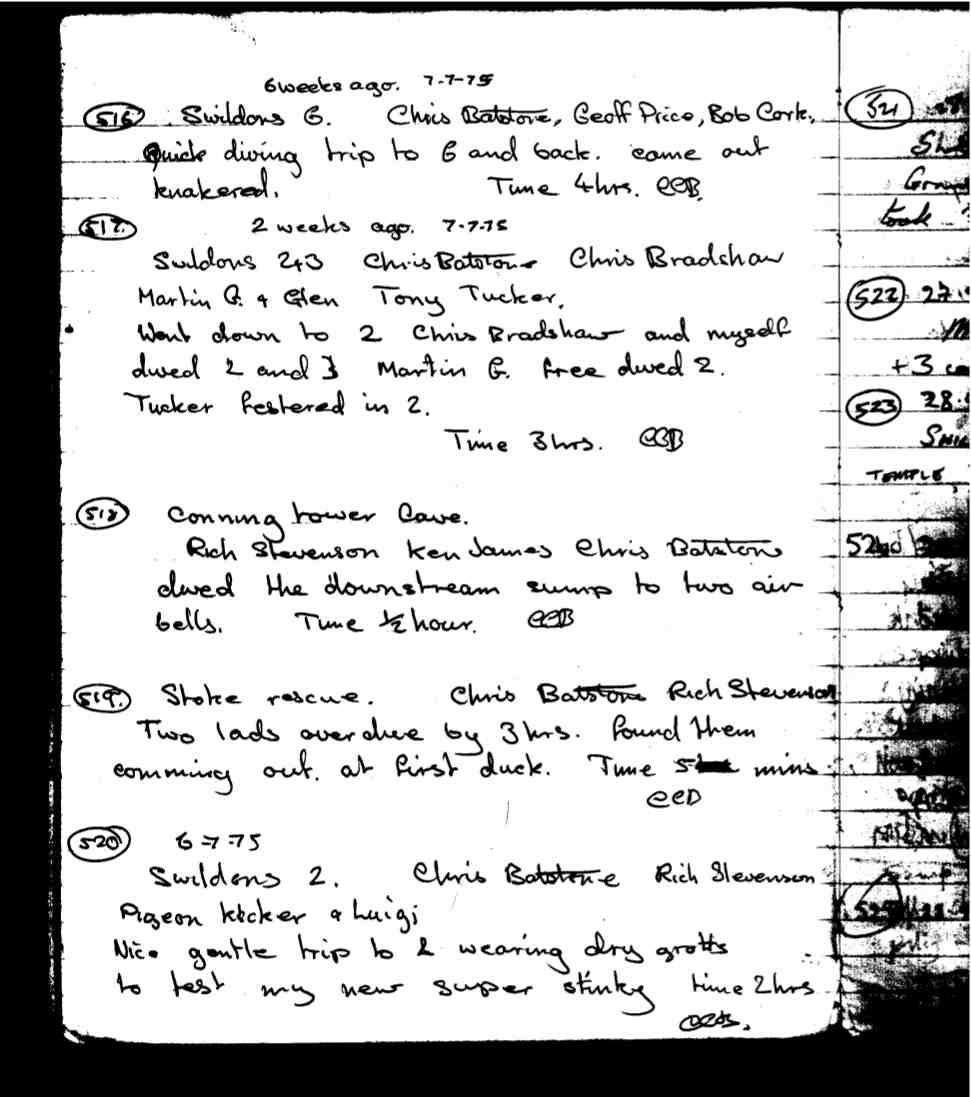 6 weeks ago. 7-7-75
516 Swildons 6. Chris Batstone, Geoff Price, Bob Cork.,
Quick diving trip to 6 and back. come out
knakered. Time 4hrs. CCB.
517. 2 weeks ago. 7-7-75
Swildons 2+3 Chris Batstone Chris Bradshaw
Martin G. + Glen Tony Tucker.
Went down to 2 Chris Bradshaw and myself
dived 2 and 3 Martin G. free dived 2.
Tucker festered in 2.
Time 3hrs. CCB
518 Conning tower Cave.
Rich Stevenson Ken James Chris Batstone
dived the downstream sump to two air
bells. Time ½ hour. CCB
519. Stoke rescue. Chris Batstone Rich Stevenson
Two lads overdue by 3hrs. found them
comming out. at first duck. Time mins
CCB
520 6-7-75
Swildons 2. Chris Batstone Rich Stevenson
Pigeon kicker & Luigi
Nice gentle trip to 2 wearing dry grotts
to test my new super stinky time 2hrs
CCB.
521
took
522 27
+3
523 28.
TEMPLE
524
525